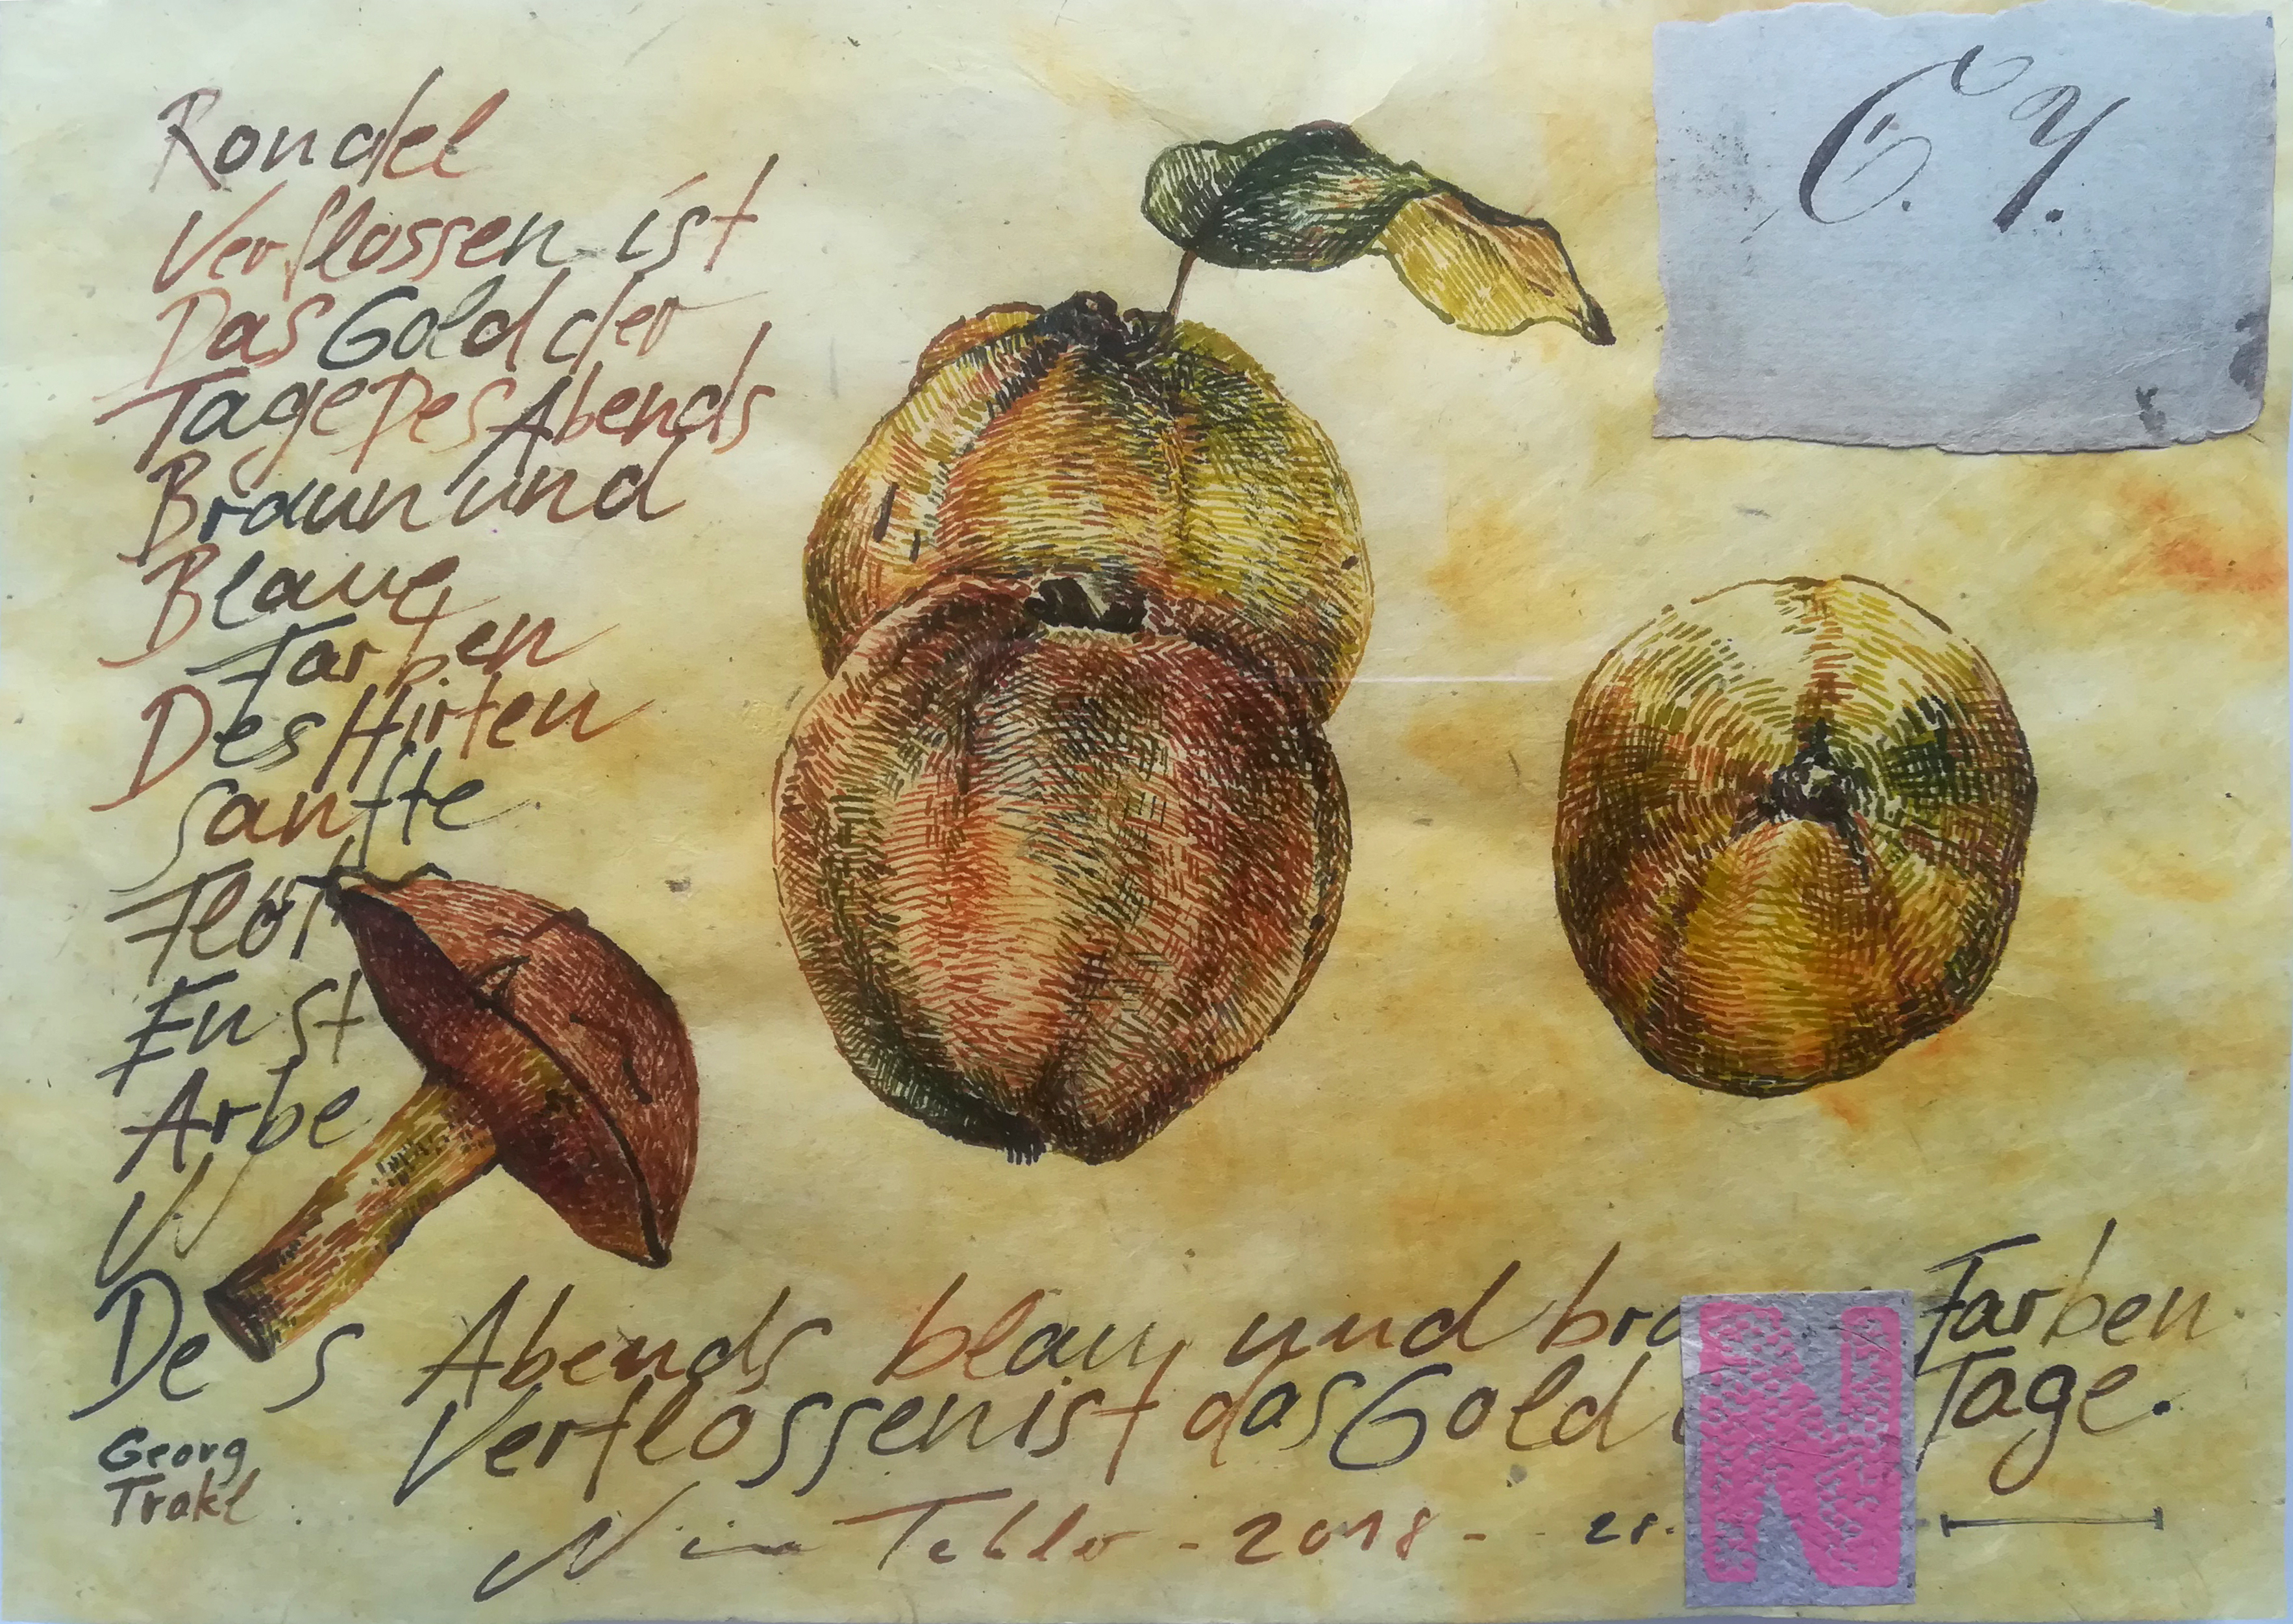 Rondel
Verflossen ist
Das Gold der
Tage Des Abends
Braun und
Blaue
Farben
Des Hirten
sanfte
Flöt
Arbe
Des Abends blau und bra Farben
Verflossen ist das Gold Tage.
Georg
Trakl
- 2018 - 28.
N